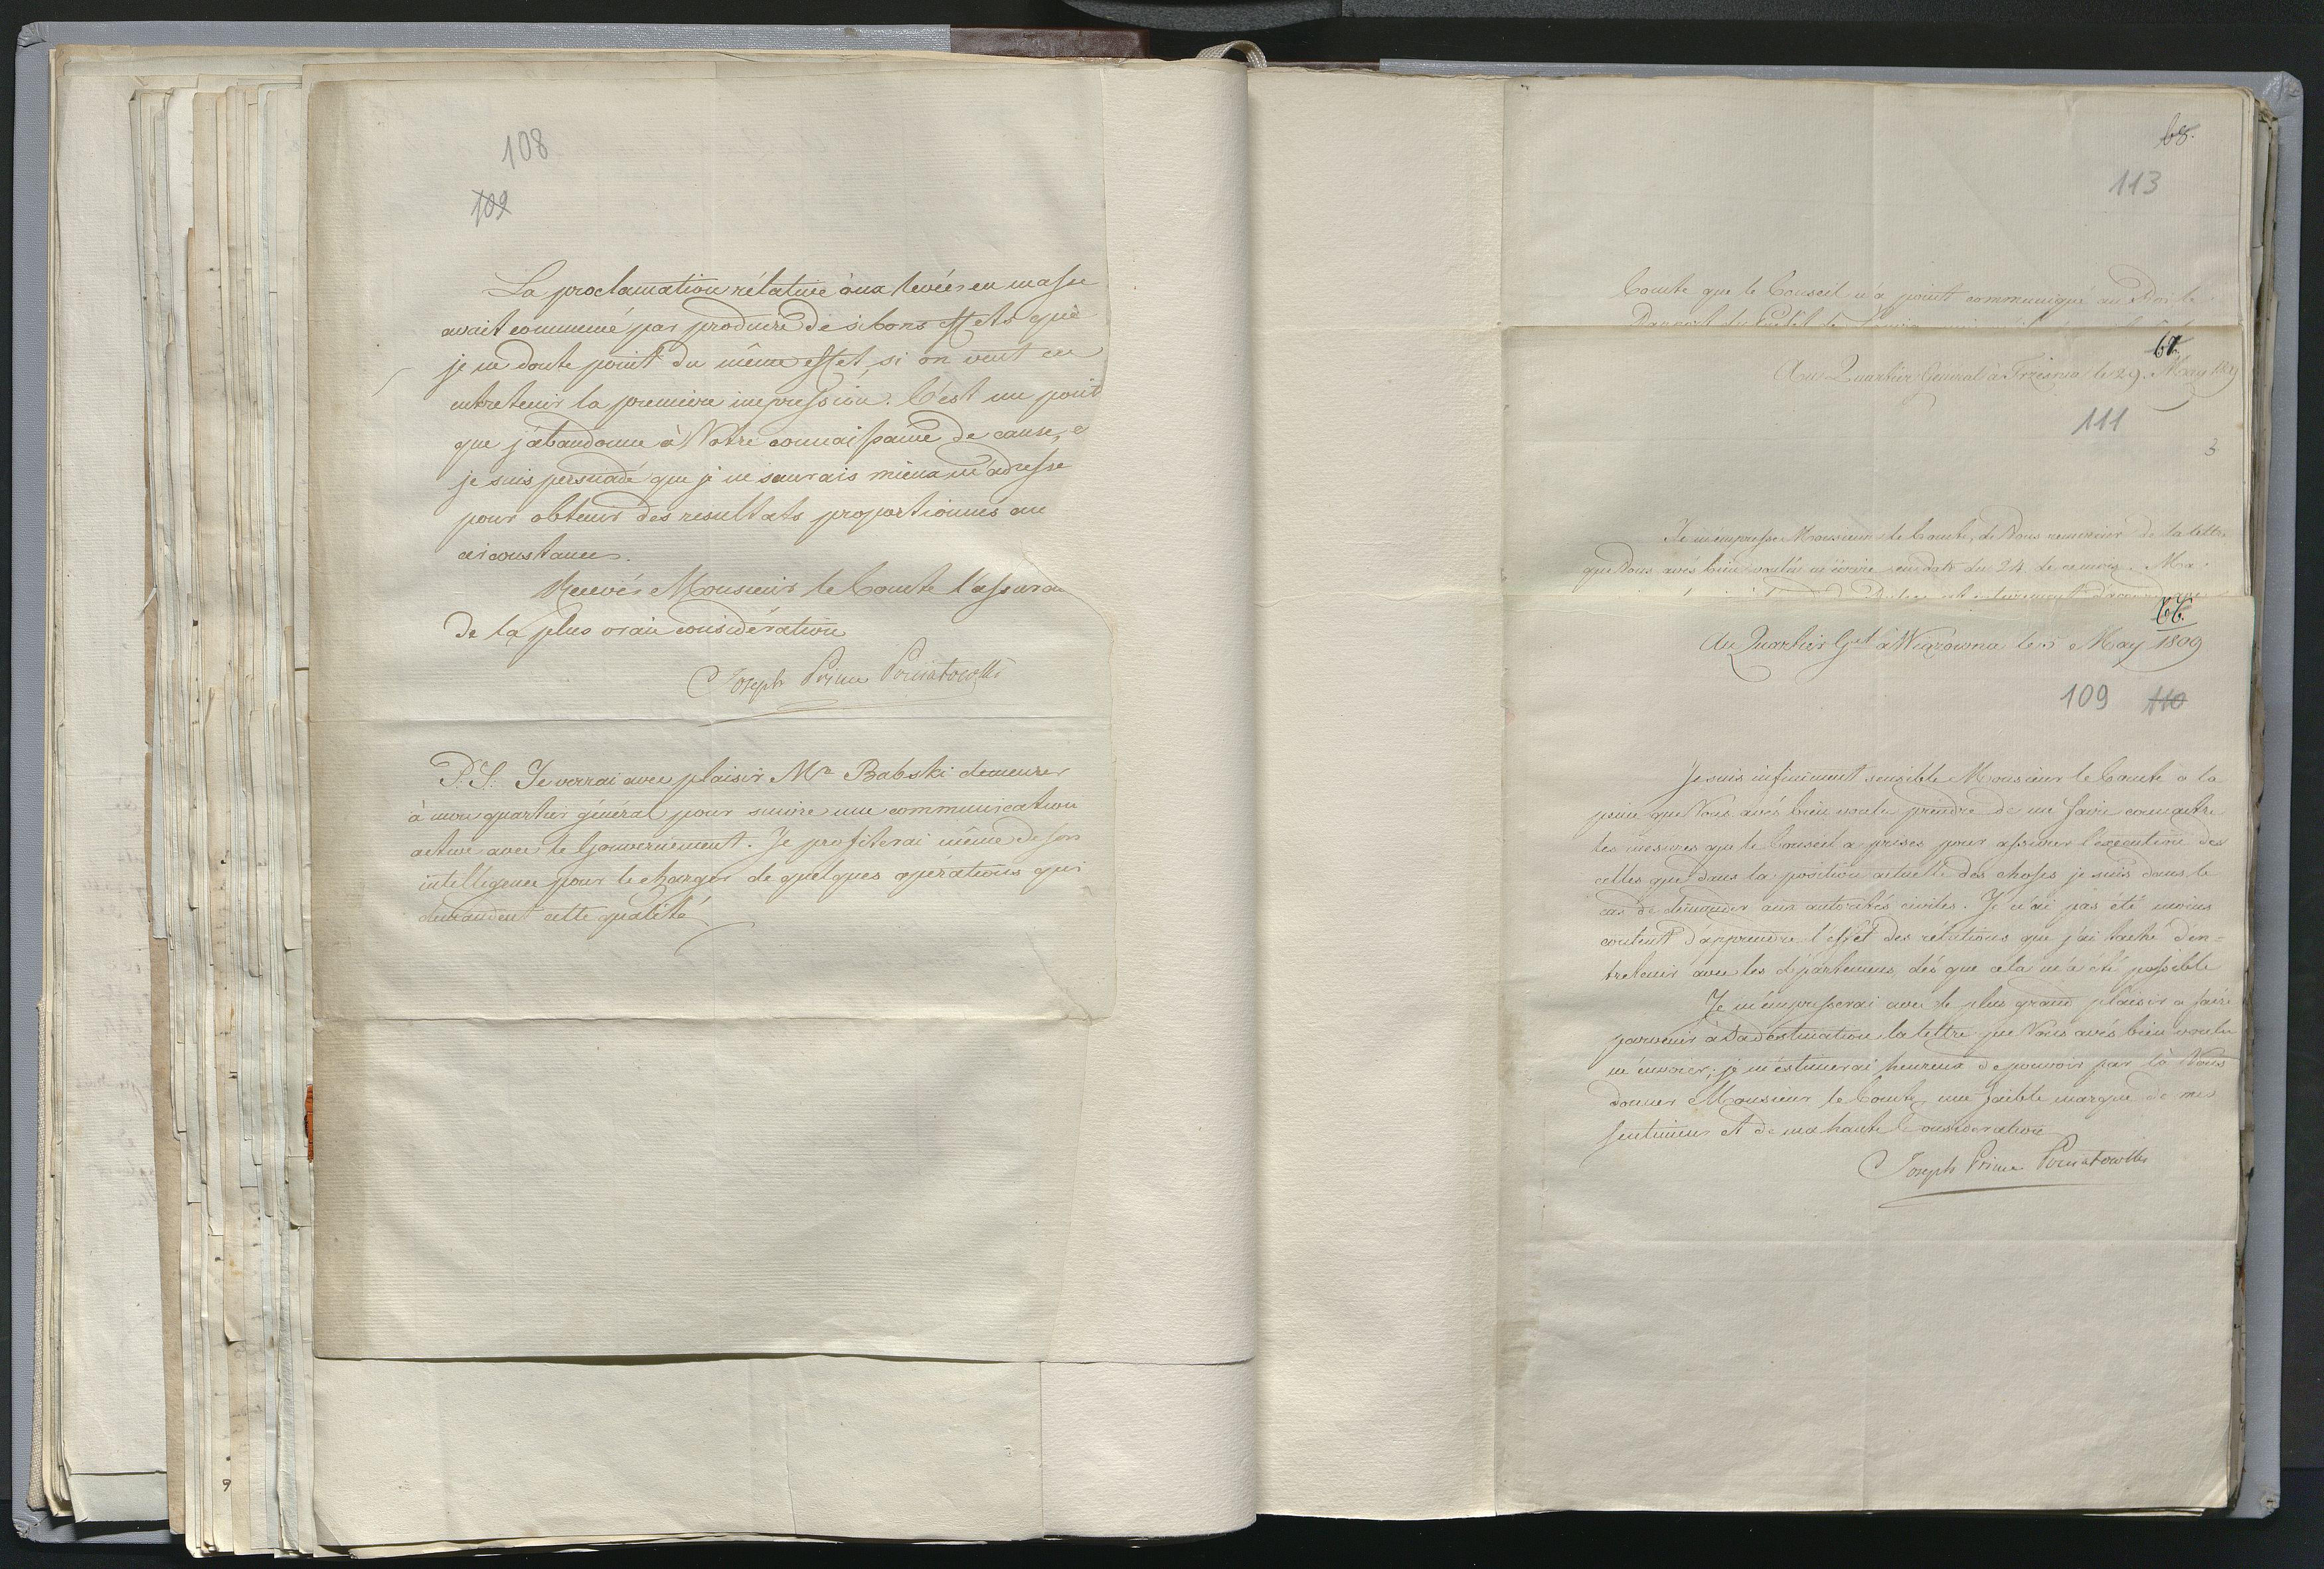 108
109
La proclamation rélative aux levées en masse
avait commencé par produire de si bons effets que
je ne doute point du même effet, si on veut en
entretenir la première impression. C'est un point
que j'abandonne à Votre connaissance de cause, e
je suis persuadé que je ne saurais mieux m'adresse
pour obtenir des resultats proportionnés au
circonstances.
Recevés Monsieur le Comte l'assuran
de la plus vraie considération
Joseph Prince Poniatowski
P.S. Je verrai avec plaisir Mr Babski demeurer
à mon quartier général pour suivre une communication
active avec le Gouvernement. Je profiterai même de son
intelligence pour le charger de quelques opérations qui
demandent cette qualité
68.
113
Comte que le Conseil n'a point communiqué au
67.
Au Quartier General à Trzesnia le 29. May 1809
111
3
Je m'empresse Monsieur le Comte, de Vous remercier de la lettre
que Vous avés bien voulu m'écrire en date du 24 de ce mois. Ma
66.
Au Quartier Gral à Wiązowna le 5 May 1809
109 110
Je suis infiniment sensible Monsieur le Comte a la
peine que Vous avés bien voulu prendre de me faire connaitre
les mesures que le Conseil a prises pour assurer l'éxécution des
celles que dans la position actuelle des choses je suis dans le
cas de demander aux autorités civiles. Je n'ai pas été moins
content d'apprendre l'effet des rélations que j'ai taché d'en=
tretenir avec les départemens, dés que cela m'a été possible
Je m'empresserai avec le plus grand plaisir a faire
parvenir à Sa déstination la lettre que Vous avés bien voulu
m'envoier; je m'éstimerai heureux de pouvoir par là Vous
donner Monsieur le Comte, une faible marque de mes
sentimens et de ma haute Consideration
Joseph Prince Poniatowski